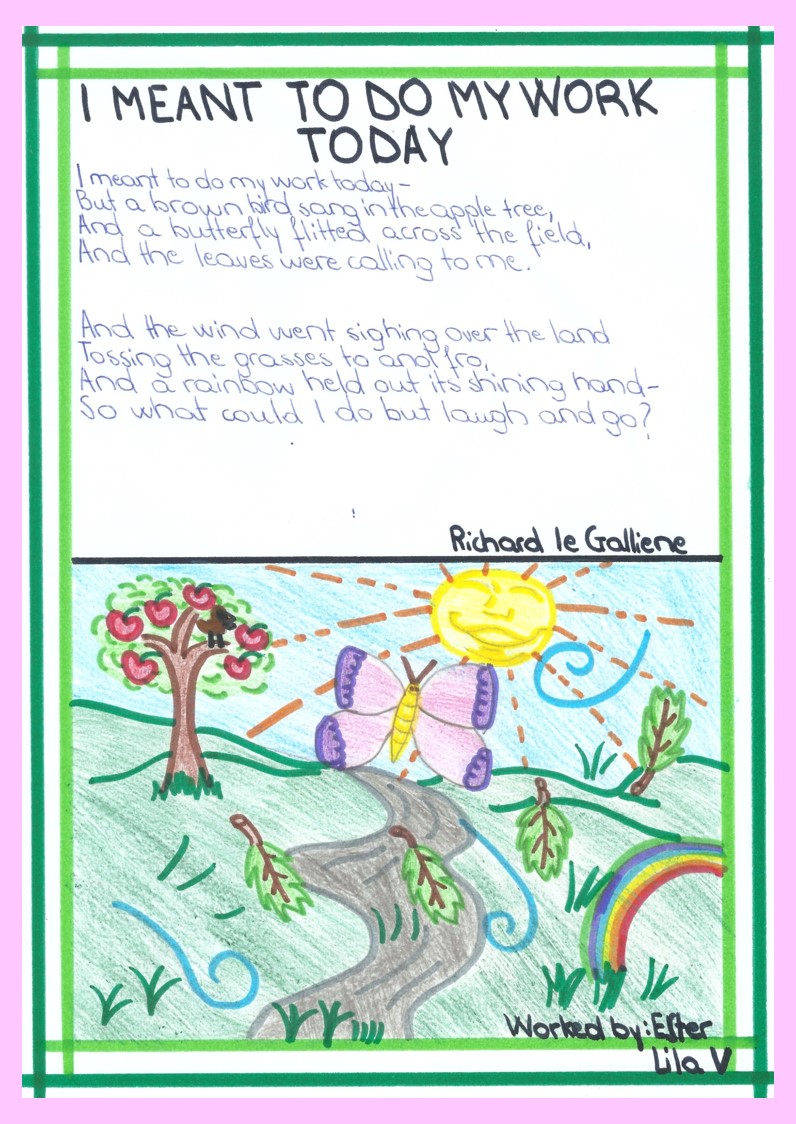 I MEANT TO DO MY WORK
TODAY
I meant to do my work today-
But a brown bird sang in the apple tree,
And a butterfly flitted across the field,
And the leaves were calling to me.
And the wind went sighing over the land
Tossing the grasses to and fro,
And a rainbow held out its shining hand-
So what could I do but laugh and go?
Richard le Galliene
Worked by: Ester
Lila V